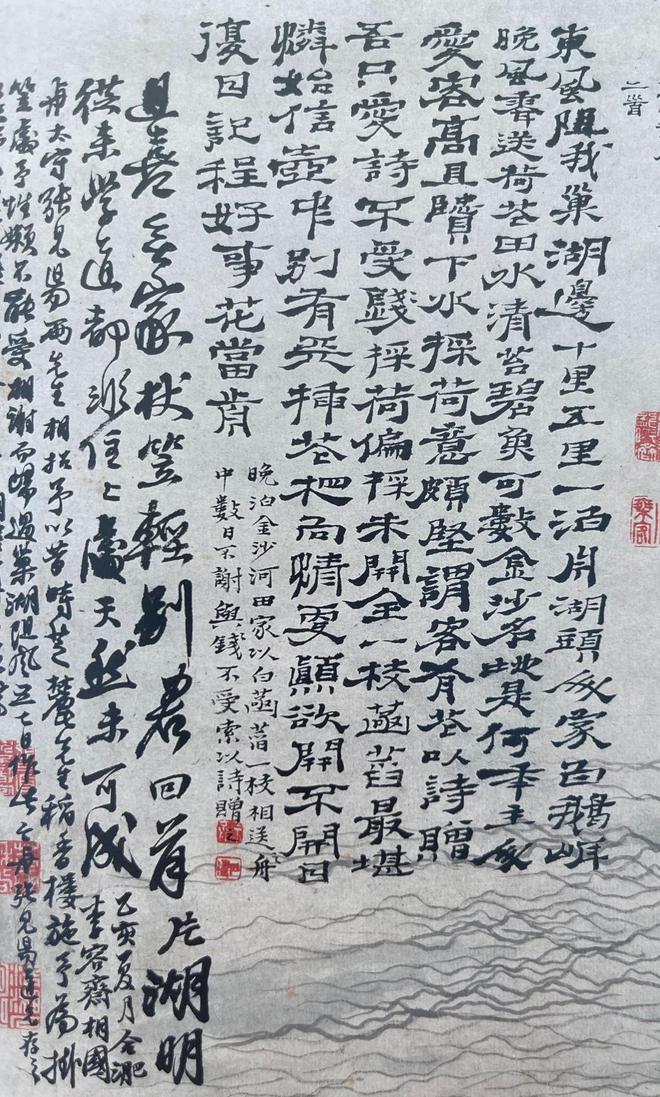 二首
東風阻我巢湖邊十里五里一泊舟湖頭人家白鵝岸
晚風霽送荷花田水清苔碧魚可數金沙名地是何年主家
愛客高且牘下水採荷意頗堅謂客有花以詩贈
吾只愛詩不受錢採荷偏採未開全一枝菡萏最堪
憐始信壺中別有天插花把向情更顛欲開不開日
復日記程好事花當前
晚泊金沙河田家以白菡萏一枝相送舟
中數日不謝與錢不受索以詩贈之
且喜無家杖笠輕別君回首片湖明
從來學道都非住住處天然未可成
乙亥夏月合肥
李容齋相國
與太守張見陽兩先生相招予以昔時芝麓先生稻香樓施予為掛
笠處予性懶不能受相謝而歸過巢湖阻風五七日作